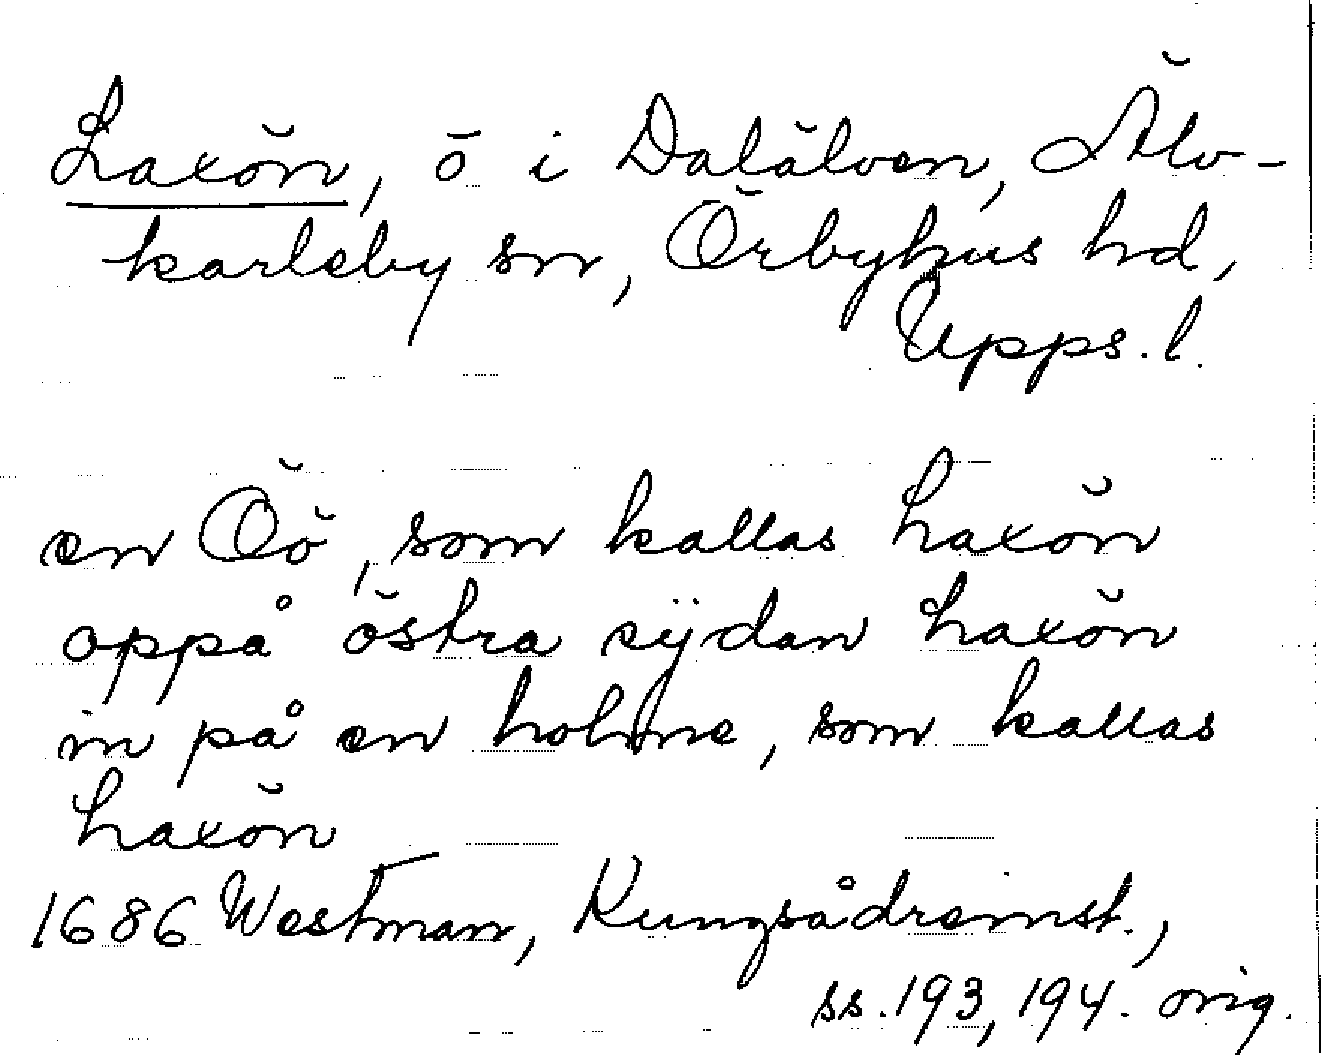 Laxön, ö i Dalälven, Älv-
karleby sn, Örbyhus hd,
Upps. l.
en Öö, som kallas Laxön
oppå östra sÿdan Laxön
in på en holme, som kallas
Laxön
1686 Westman, Kungsådreinst.,
ss. 193, 194. orig.